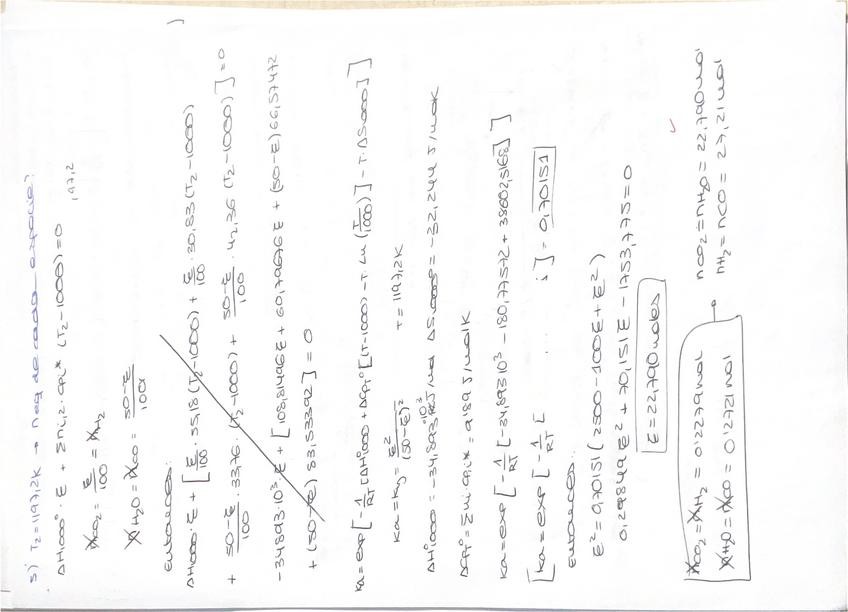 5) T₂=1197,2K → neq de cada especie?
ΔH₁₀₀₀° · E + Σni,2 · cpi* (T₂-1000)=0
197,2
XCO₂ = E/100 = XH₂
XH₂O = XCO = (50-E)/100
entonces:
ΔH₁₀₀₀° · E + [ E/100 · 55,18 (T₂-1000) + E/100 · 30,83 (T₂-1000)
+ (50-E)/100 · 33,76 · (T₂-1000) + (50-E)/100 · 42,36 (T₂-1000) ] = 0
-34893·10³ · E + [108,81496 E + 60,79676 E + (50-E) 66,57472
+ (50-E) 83,53392] = 0
ka = exp [ -1/RT [ΔH°₁₀₀₀ + ΔcpT° [(T-1000) - T · Ln (T/1000)] - T · ΔS₁₀₀₀] ]
ka = ky = E²/(50-E)² T = 1197,2K
ΔH°₁₀₀₀ = -34,893·10³ J/mol ΔS₁₀₀₀ = -32,244 J/molK
ΔcpT° = Σνi·cpi* = 9,89 J/molK
ka = exp [ -1/RT [-34,893·10³ - 180,77572 + 38602,5168] ]
[ka = exp [ -1/RT [ ... ] = 0,70151
entonces:
E² = 0,70151 (2500 - 100E + E²)
0,29849 E² + 70,151 E - 1753,775 = 0
E = 22,790 moles
XCO₂ = XH₂ = 0,2279 mol → nCO₂ = nH₂O = 22,790 mol
XH₂O = XCO = 0,2721 mol nH₂ = nCO = 27,21 mol